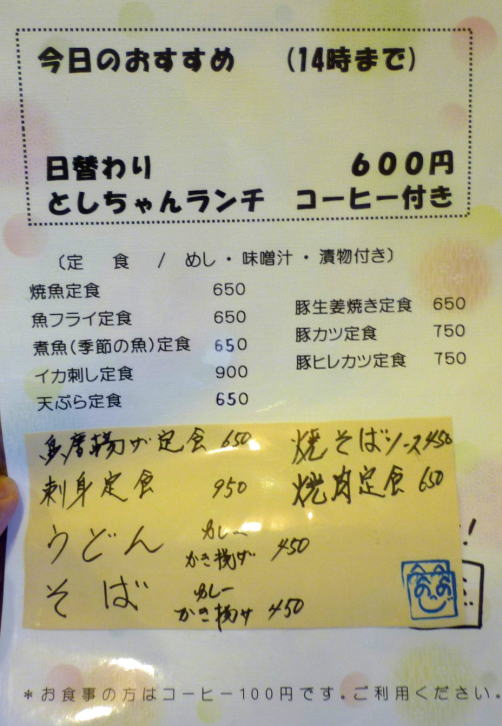 今日のおすすめ （14時まで）
日替わり 600円
としちゃんランチ コーヒー付き
〔定 食 / めし・味噌汁・漬物付き〕
焼魚定食 650
魚フライ定食 650
煮魚(季節の魚)定食 650
イカ刺し定食 900
天ぷら定食 650
豚生姜焼き定食 650
豚カツ定食 750
豚ヒレカツ定食 750
鳥唐揚げ定食 650
刺身定食 950
焼そばソース 450
焼肉定食 650
うどん カレー かき揚げ 450
そば カレー かき揚げ 450
*お食事の方はコーヒー100円です。ご利用ください。